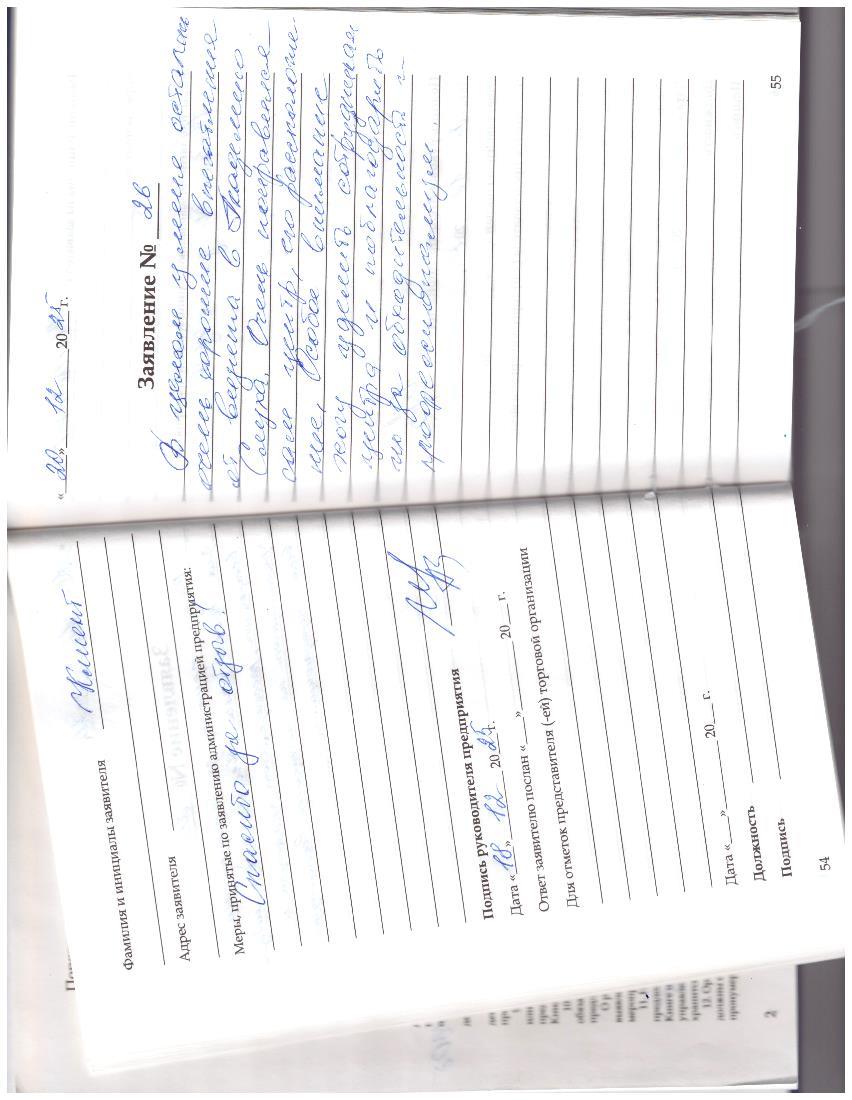 Фамилия и инициалы заявителя Клиент
Адрес заявителя
Меры, принятые по заявлению администрацией предприятия:
Спасибо за отзыв!
Подпись руководителя предприятия
Дата «18» 12 2025 г.
Ответ заявителю послан «___» ________ 20__ г.
Для отметок представителя (-ей) торговой организации
Дата «___» ________ 20__ г.
Должность
Подпись
54
«20» 12 2025 г.
Заявление № 26
В целом у меня остались
очень хорошие впечатления
от визита в Академию
Очень понравился
сам центр, его расположе
ние, Особое внимание
могу уделить сотрудникам
центра и поблагодарить
их за обходительность и
профессионализм.
55
2